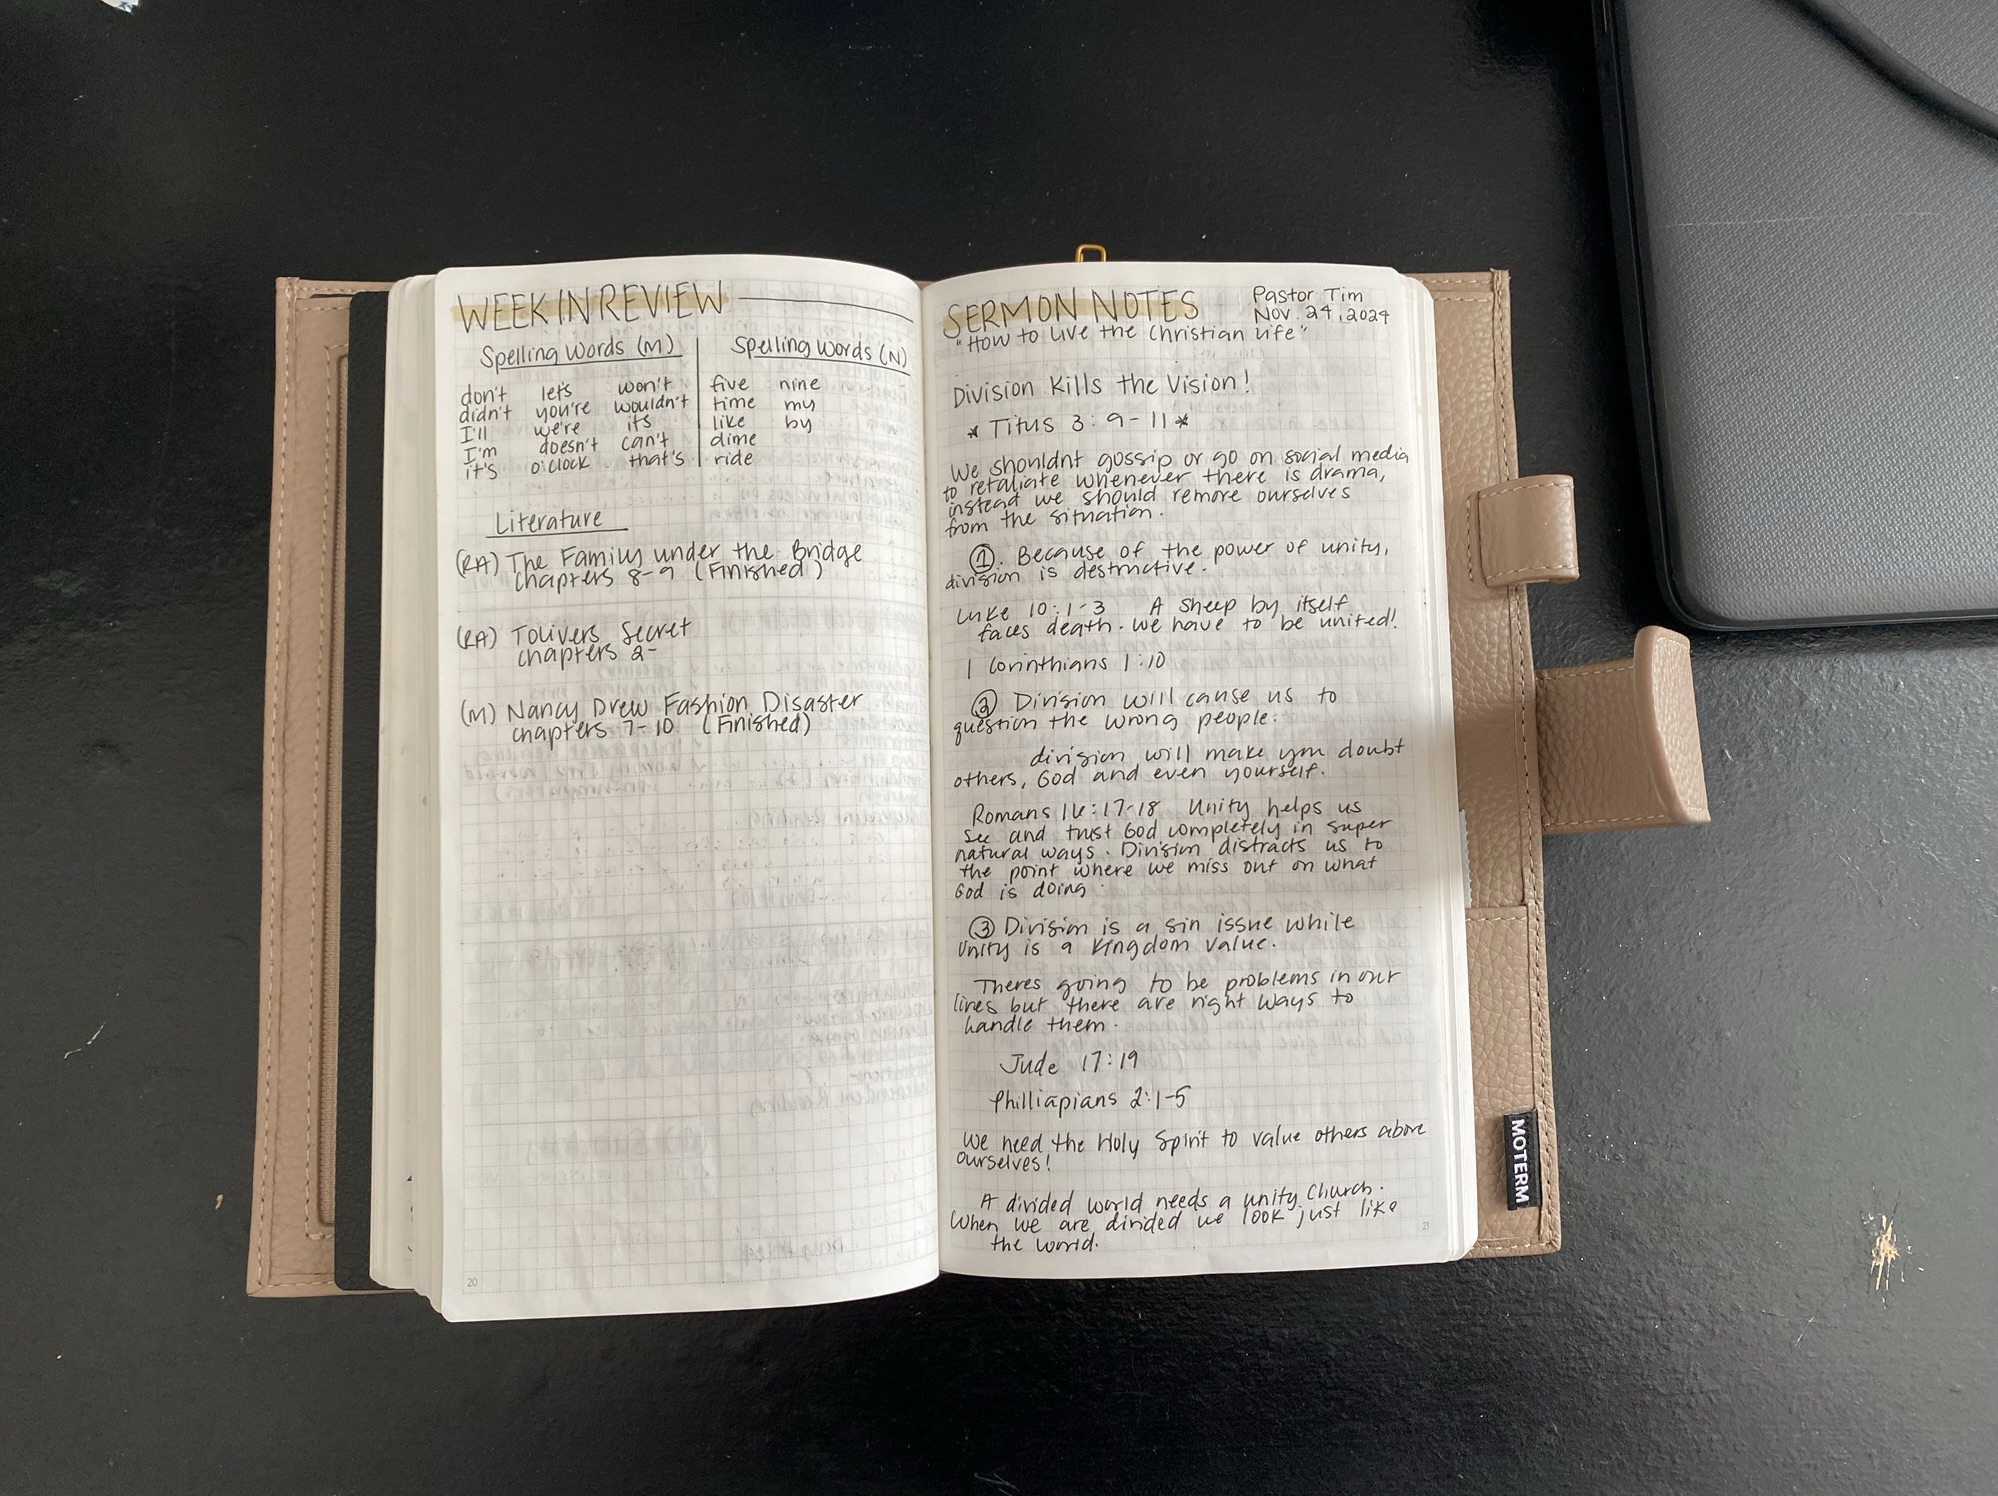 WEEK IN REVIEW
Spelling Words (M)
don't let's won't
didn't you're wouldn't
I'll we're its
I'm doesn't can't
it's o'clock that's
Spelling Words (N)
five nine
time my
like by
dime
ride
Literature
(RA) The Family under the Bridge
chapters 8-9 (Finished)
(RA) Tolivers Secret
chapters 2-
(M) Nancy Drew Fashion Disaster
chapters 7-10 (Finished)
20
SERMON NOTES
Pastor Tim
Nov. 24, 2024
"How to Live the Christian Life"
Division Kills the Vision!
* Titus 3:9-11 *
We shouldnt gossip or go on social media
to retaliate whenever there is drama,
instead we should remove ourselves
from the situation.
①. Because of the power of unity,
division is destructive.
Luke 10:1-3 A sheep by itself
faces death. We have to be united!
1 Corinthians 1:10
② Division will cause us to
question the wrong people.
division will make you doubt
others, God and even yourself.
Romans 16:17-18 Unity helps us
see and trust God completely in super
natural ways. Division distracts us to
the point where we miss out on what
God is doing.
③ Division is a sin issue while
Unity is a Kingdom value.
Theres going to be problems in our
lives but there are right ways to
handle them.
Jude 17:19
Philliapians 2:1-5
We need the Holy Spirit to value others above
ourselves!
A divided world needs a unity Church.
When we are divided we look just like
the world.
21
MOTERM